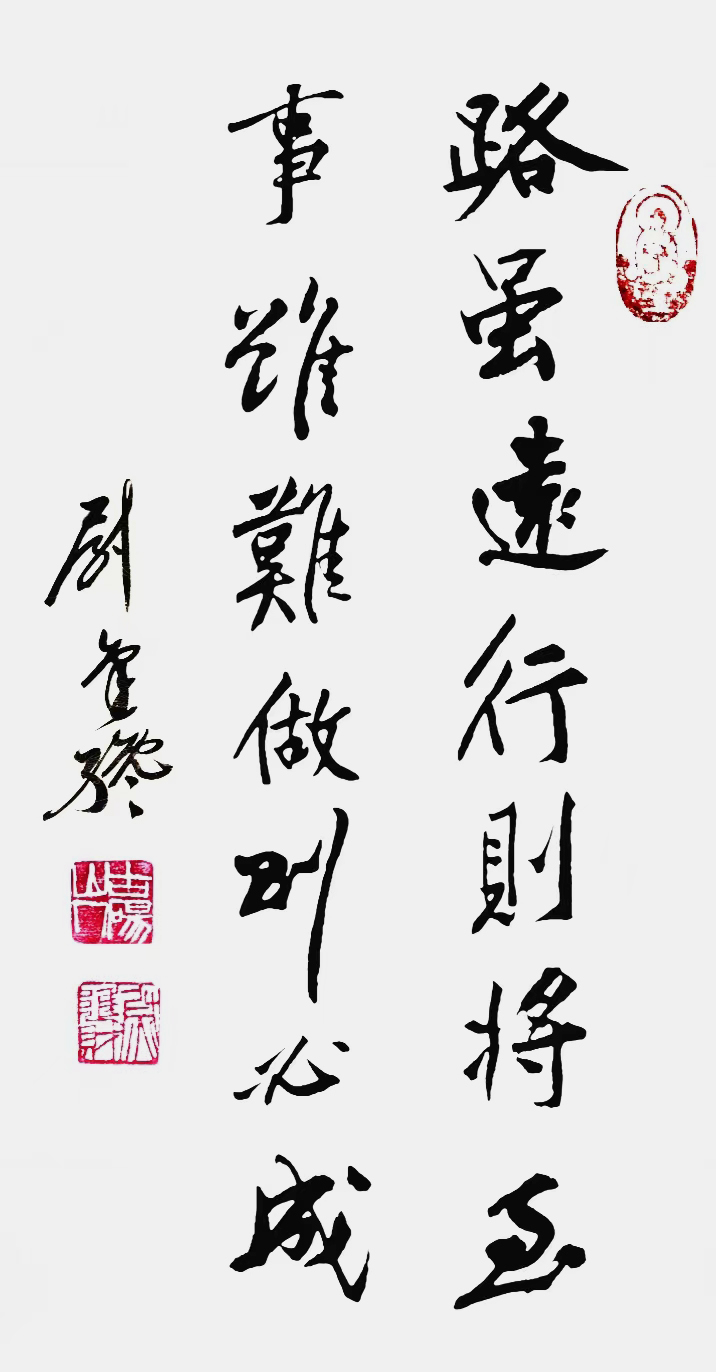 路虽遠行則將至
事雖難做則必成
尉